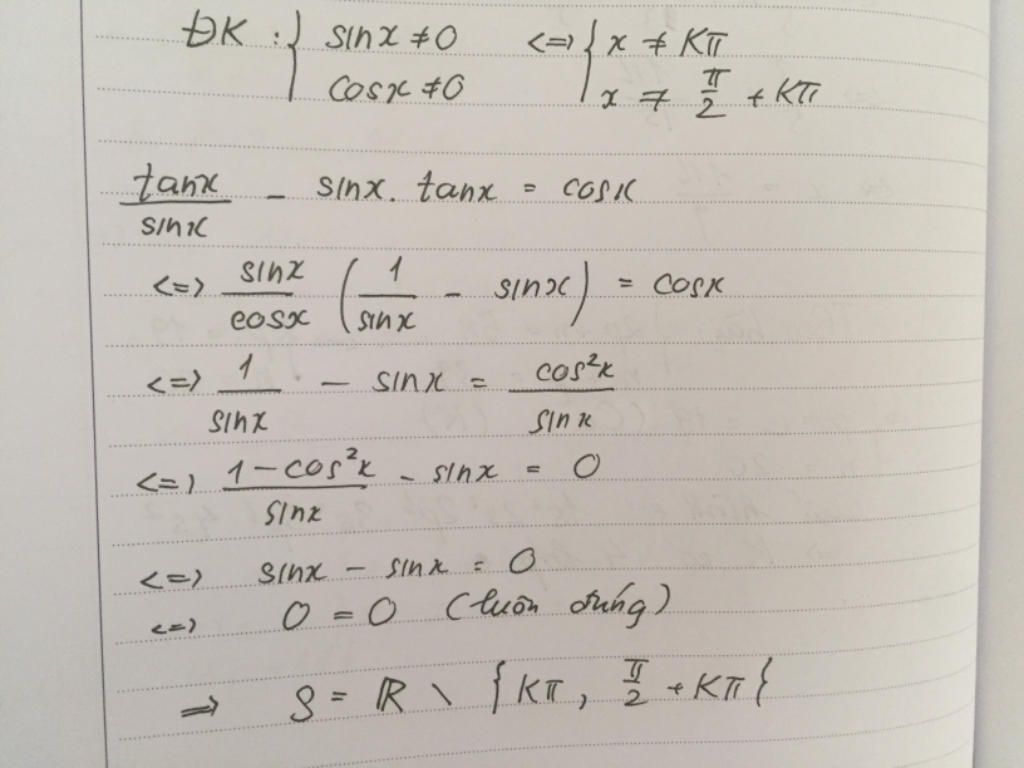 ĐK : { sinx ≠ 0 <=> { x ≠ Kπ
cosx ≠ 0 x ≠ π/2 + Kπ
tanx/sinx - sinx. tanx = cosx
<=> sinx/cosx (1/sinx - sinx) = cosx
<=> 1/sinx - sinx = cos²x/sinx
<=> (1-cos²x)/sinx - sinx = 0
<=> sinx - sinx = 0
<=> 0 = 0 (luôn đúng)
=> S = ℝ \ {Kπ, π/2 + Kπ}